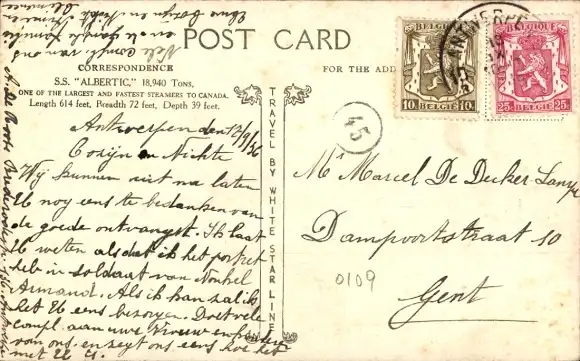 POST CARD
CORRESPONDENCE
S.S. "ALBERTIC," 18,940 Tons,
ONE OF THE LARGEST AND FASTEST STEAMERS TO CANADA.
Length 614 feet, Breadth 72 feet, Depth 39 feet.
FOR THE ADD
TRAVEL BY WHITE STAR LINE
BELGIQUE
10c BELGIË 10c
BELGIQUE
25c BELGIË 25c
ANTWERPE
45
Antwerpen den 12/9/36
Cozijn en Nichte
Wij kunnen niet na laten
U nog eens te bedanken van
de goede ontvangst. Ik laat
U weten als dat ik het portret
heb in soldaat van Nonkel
Armand. Als ik kan zal ik
het U eens bezorgen. Doet vele
compl. aan uwe Vrouw en
van ons en zegt ons eens hoe het
met U is.
Vele compl. van ons
en de familie
Mr Marcel De Decker
Dampoortstraat 10
Gent
0109